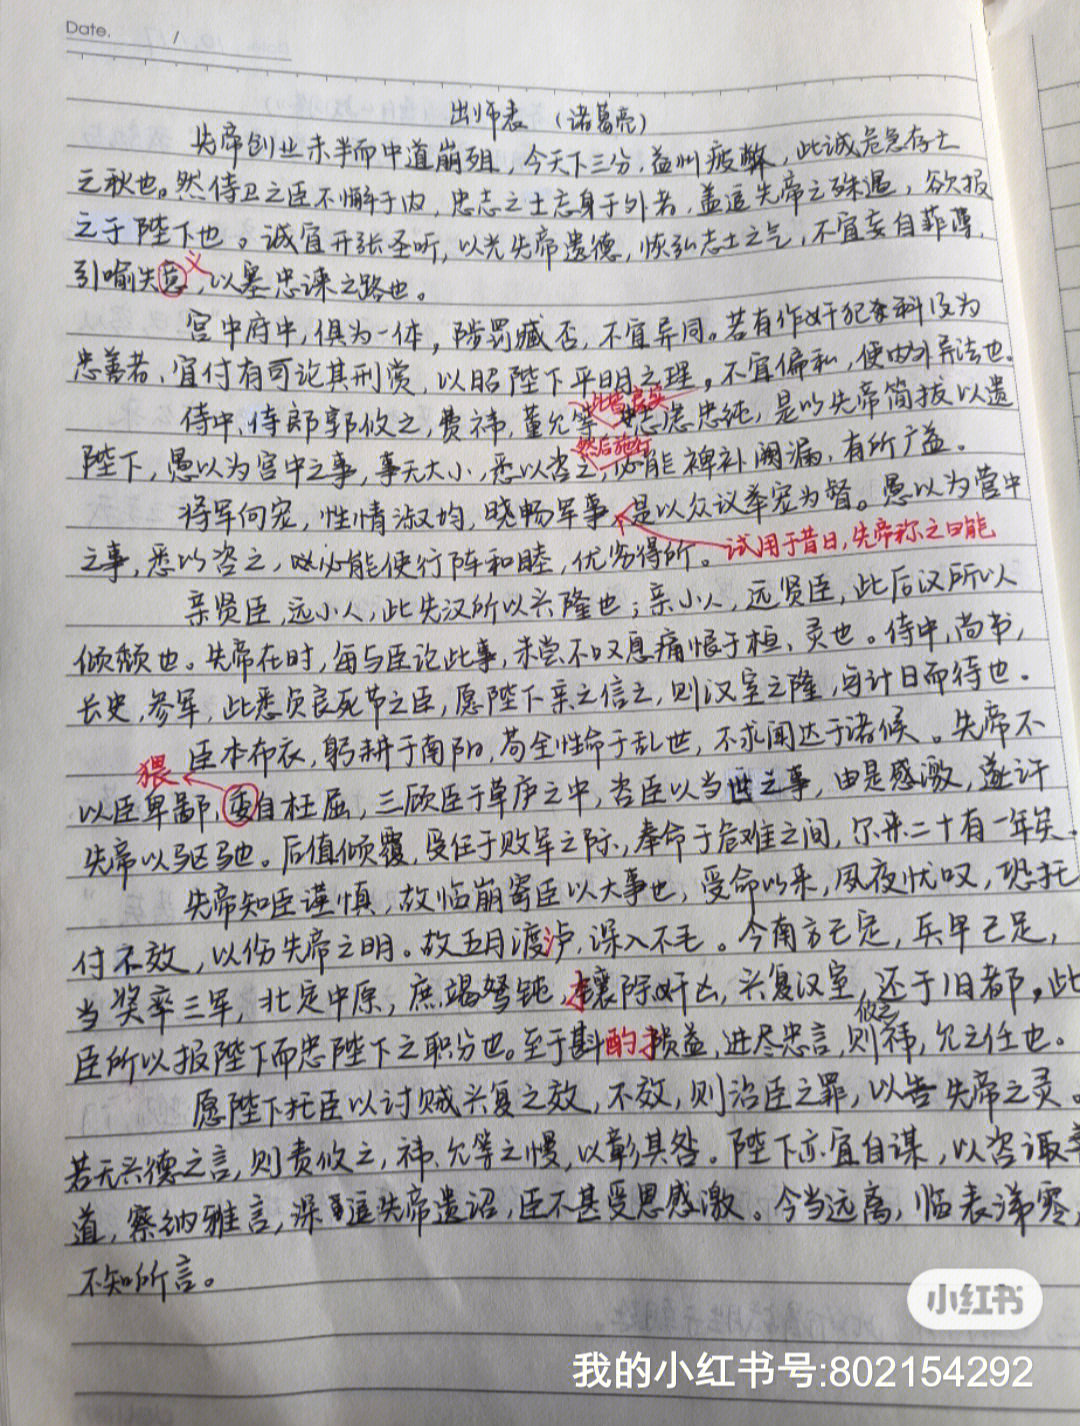 Date. /
出师表（诸葛亮）
先帝创业未半而中道崩殂，今天下三分，益州疲弊，此诚危急存亡
之秋也。然侍卫之臣不懈于内，忠志之士忘身于外者，盖追先帝之殊遇，欲报
之于陛下也。诚宜开张圣听，以光先帝遗德，恢弘志士之气，不宜妄自菲薄，
义
引喻失，以塞忠谏之路也。
宫中府中，俱为一体，陟罚臧否，不宜异同。若有作奸犯科及为
忠善者，宜付有司论其刑赏，以昭陛下平明之理。不宜偏私，使内外异法也。
此皆良实
侍中、侍郎郭攸之，费祎，董允等，志虑忠纯，是以先帝简拔以遗
然后施行
陛下，愚以为宫中之事，事无大小，悉以咨之，必能裨补阙漏，有所广益。
将军向宠，性情淑均，晓畅军事，是以众议举宠为督。愚以为营中
试用于昔日，先帝称之曰能
之事，悉以咨之，必能使行阵和睦，优劣得所。
亲贤臣，远小人，此先汉所以兴隆也；亲小人，远贤臣，此后汉所以
倾颓也。先帝在时，每与臣论此事，未尝不叹息痛恨于桓、灵也。侍中，尚书，
长史，参军，此悉贞良死节之臣，愿陛下亲之信之，则汉室之隆，可计日而待也。
臣本布衣，躬耕于南阳，苟全性命于乱世，不求闻达于诸候。先帝不
猥
以臣卑鄙，委自枉屈，三顾臣于草庐之中，咨臣以当世之事，由是感激，遂许
先帝以驱驰。后值倾覆，受任于败军之际，奉命于危难之间，尔来二十有一年矣。
先帝知臣谨慎，故临崩寄臣以大事也，受命以来，夙夜忧叹，恐托
付不效，以伤先帝之明。故五月渡泸，深入不毛。今南方已定，兵甲已足，
当奖率三军，北定中原，庶竭驽钝，攘除奸凶，兴复汉室，还于旧都。此
攸之
臣所以报陛下而忠陛下之职分也。至于斟酌损益，进尽忠言，则祎，允之任也。
愿陛下托臣以讨贼兴复之效，不效，则治臣之罪，以告先帝之灵。
若无兴德之言，则责攸之，祎、允等之慢，以彰其咎。陛下亦宜自谋，以咨诹善
道，察纳雅言，深追先帝遗诏，臣不甚受恩感激。今当远离，临表涕零，
不知所言。
小红书
我的小红书号:802154292